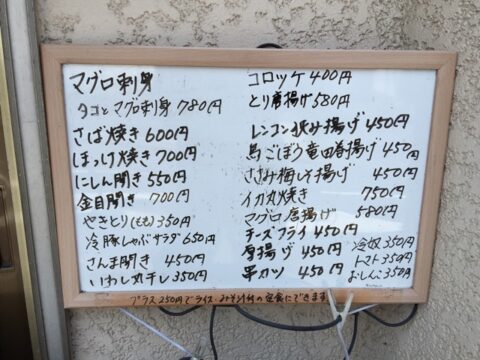 マグロ刺身
タコとマグロ刺身 780円
さば焼き 600円
ほっけ焼き 700円
にしん開き 550円
金目開き 700円
やきとり(もも) 350円
冷豚しゃぶサラダ 650円
さんま開き 450円
いわし丸干し 350円
コロッケ 400円
とり唐揚げ 580円
レンコン挟み揚げ 450円
鳥ごぼう竜田巻揚げ 450円
ささみ梅しそ揚げ 450円
イカ丸焼き 750円
マグロ唐揚げ 580円
チーズフライ 450円
厚揚げ 450円
串カツ 450円
冷奴 350円
トマト 350円
おしんこ 350円
プラス250円でライス みそ汁付の定食にできます